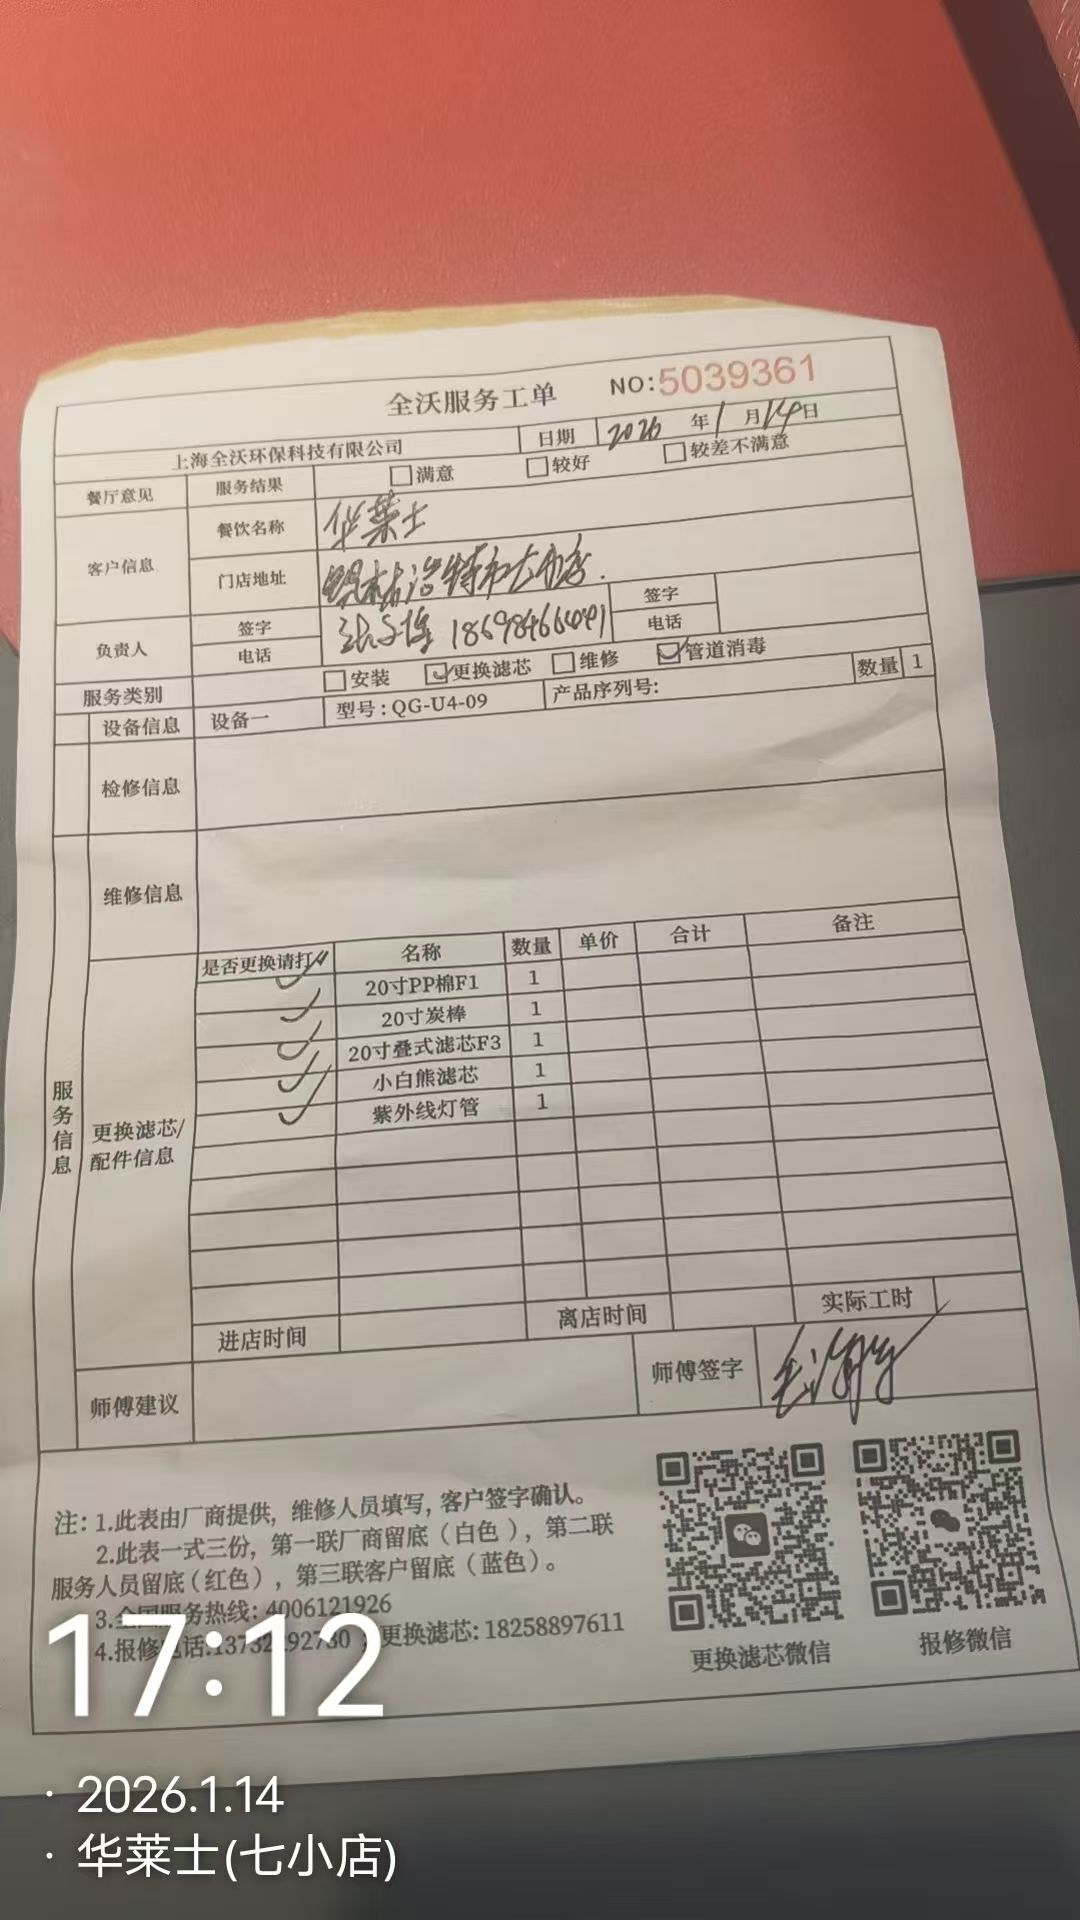 全沃服务工单 NO:5039361
上海全沃环保科技有限公司 日期 2026 年 1 月 14 日
餐厅意见 服务结果 满意 较好 较差不满意
客户信息 餐饮名称 华莱士
门店地址 锡林浩特市七小店
负责人 签字 签字
电话 电话
服务类别 安装 更换滤芯 维修 管道消毒
设备信息 设备一 型号:QG-U4-09 产品序列号: 数量 1
检修信息
维修信息
服务信息
更换滤芯/
配件信息
是否更换请打√ 名称 数量 单价 合计 备注
20寸PP棉F1 1
20寸炭棒 1
20寸叠式滤芯F3 1
小白熊滤芯 1
紫外线灯管 1
进店时间 离店时间 实际工时
师傅建议 师傅签字
注: 1.此表由厂商提供, 维修人员填写, 客户签字确认。
2.此表一式三份, 第一联厂商留底(白色), 第二联
服务人员留底(红色), 第三联客户留底(蓝色)。
3.全国服务热线: 4006121926
4.报修电话: 更换滤芯: 18258897611
更换滤芯微信 报修微信
17:12
· 2026.1.14
· 华莱士(七小店)